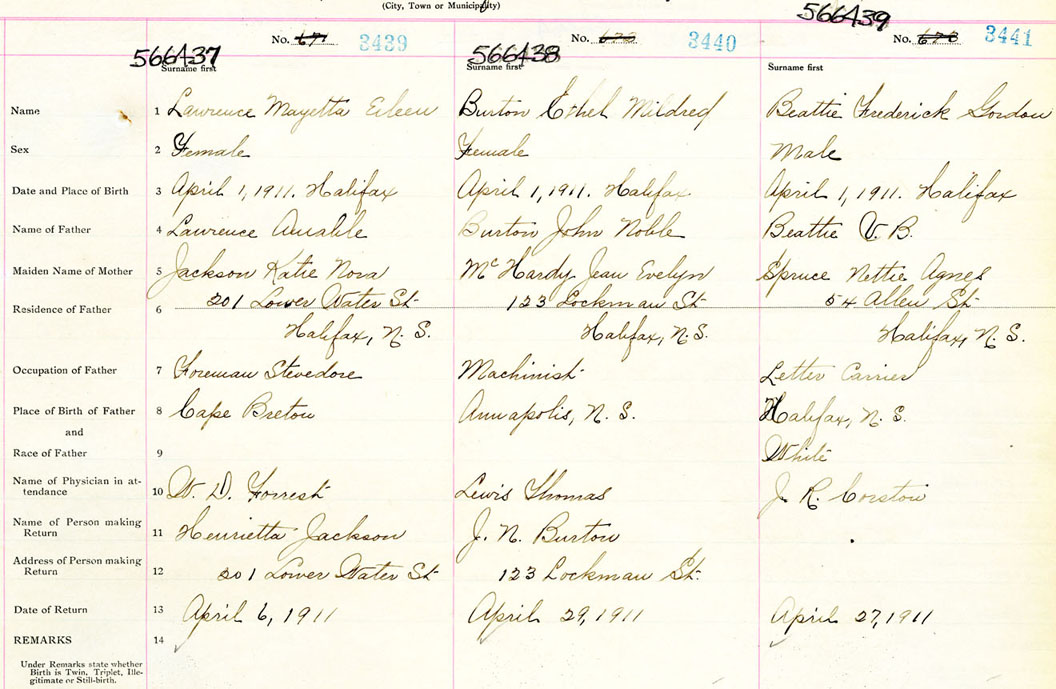 (City, Town or Municipality)
566437 No. 671 3439
566438 No. 3440
566439 No. 3441
Surname first Surname first Surname first
Name 1 Lawrence Mayetta Eileen Burton Ethel Mildred Beattie Frederick Gordon
Sex 2 Female Female Male
Date and Place of Birth 3 April 1, 1911. Halifax April 1, 1911. Halifax April 1, 1911. Halifax
Name of Father 4 Lawrence Amable Burton John Noble Beattie V. B.
Maiden Name of Mother 5 Jackson Katie Nova McHardy Jean Evelyn Spruce Nettie Agnes
Residence of Father 6 201 Lower Water St 123 Lockman St 54 Allen St
Halifax, N. S. Halifax, N. S. Halifax, N. S.
Occupation of Father 7 Foreman Stevedore Machinist Letter Carrier
Place of Birth of Father 8 Cape Breton Annapolis, N. S. Halifax, N. S.
and
Race of Father 9 White
Name of Physician in at-
tendance 10 W. D. Forrest Lewis Thomas J. R. Corston
Name of Person making
Return 11 Henrietta Jackson J. N. Burton
Address of Person making
Return 12 201 Lower Water St 123 Lockman St.
Date of Return 13 April 6, 1911 April 29, 1911 April 27, 1911
REMARKS 14
Under Remarks state whether
Birth is Twin, Triplet, Ille-
gitimate or Still-birth.